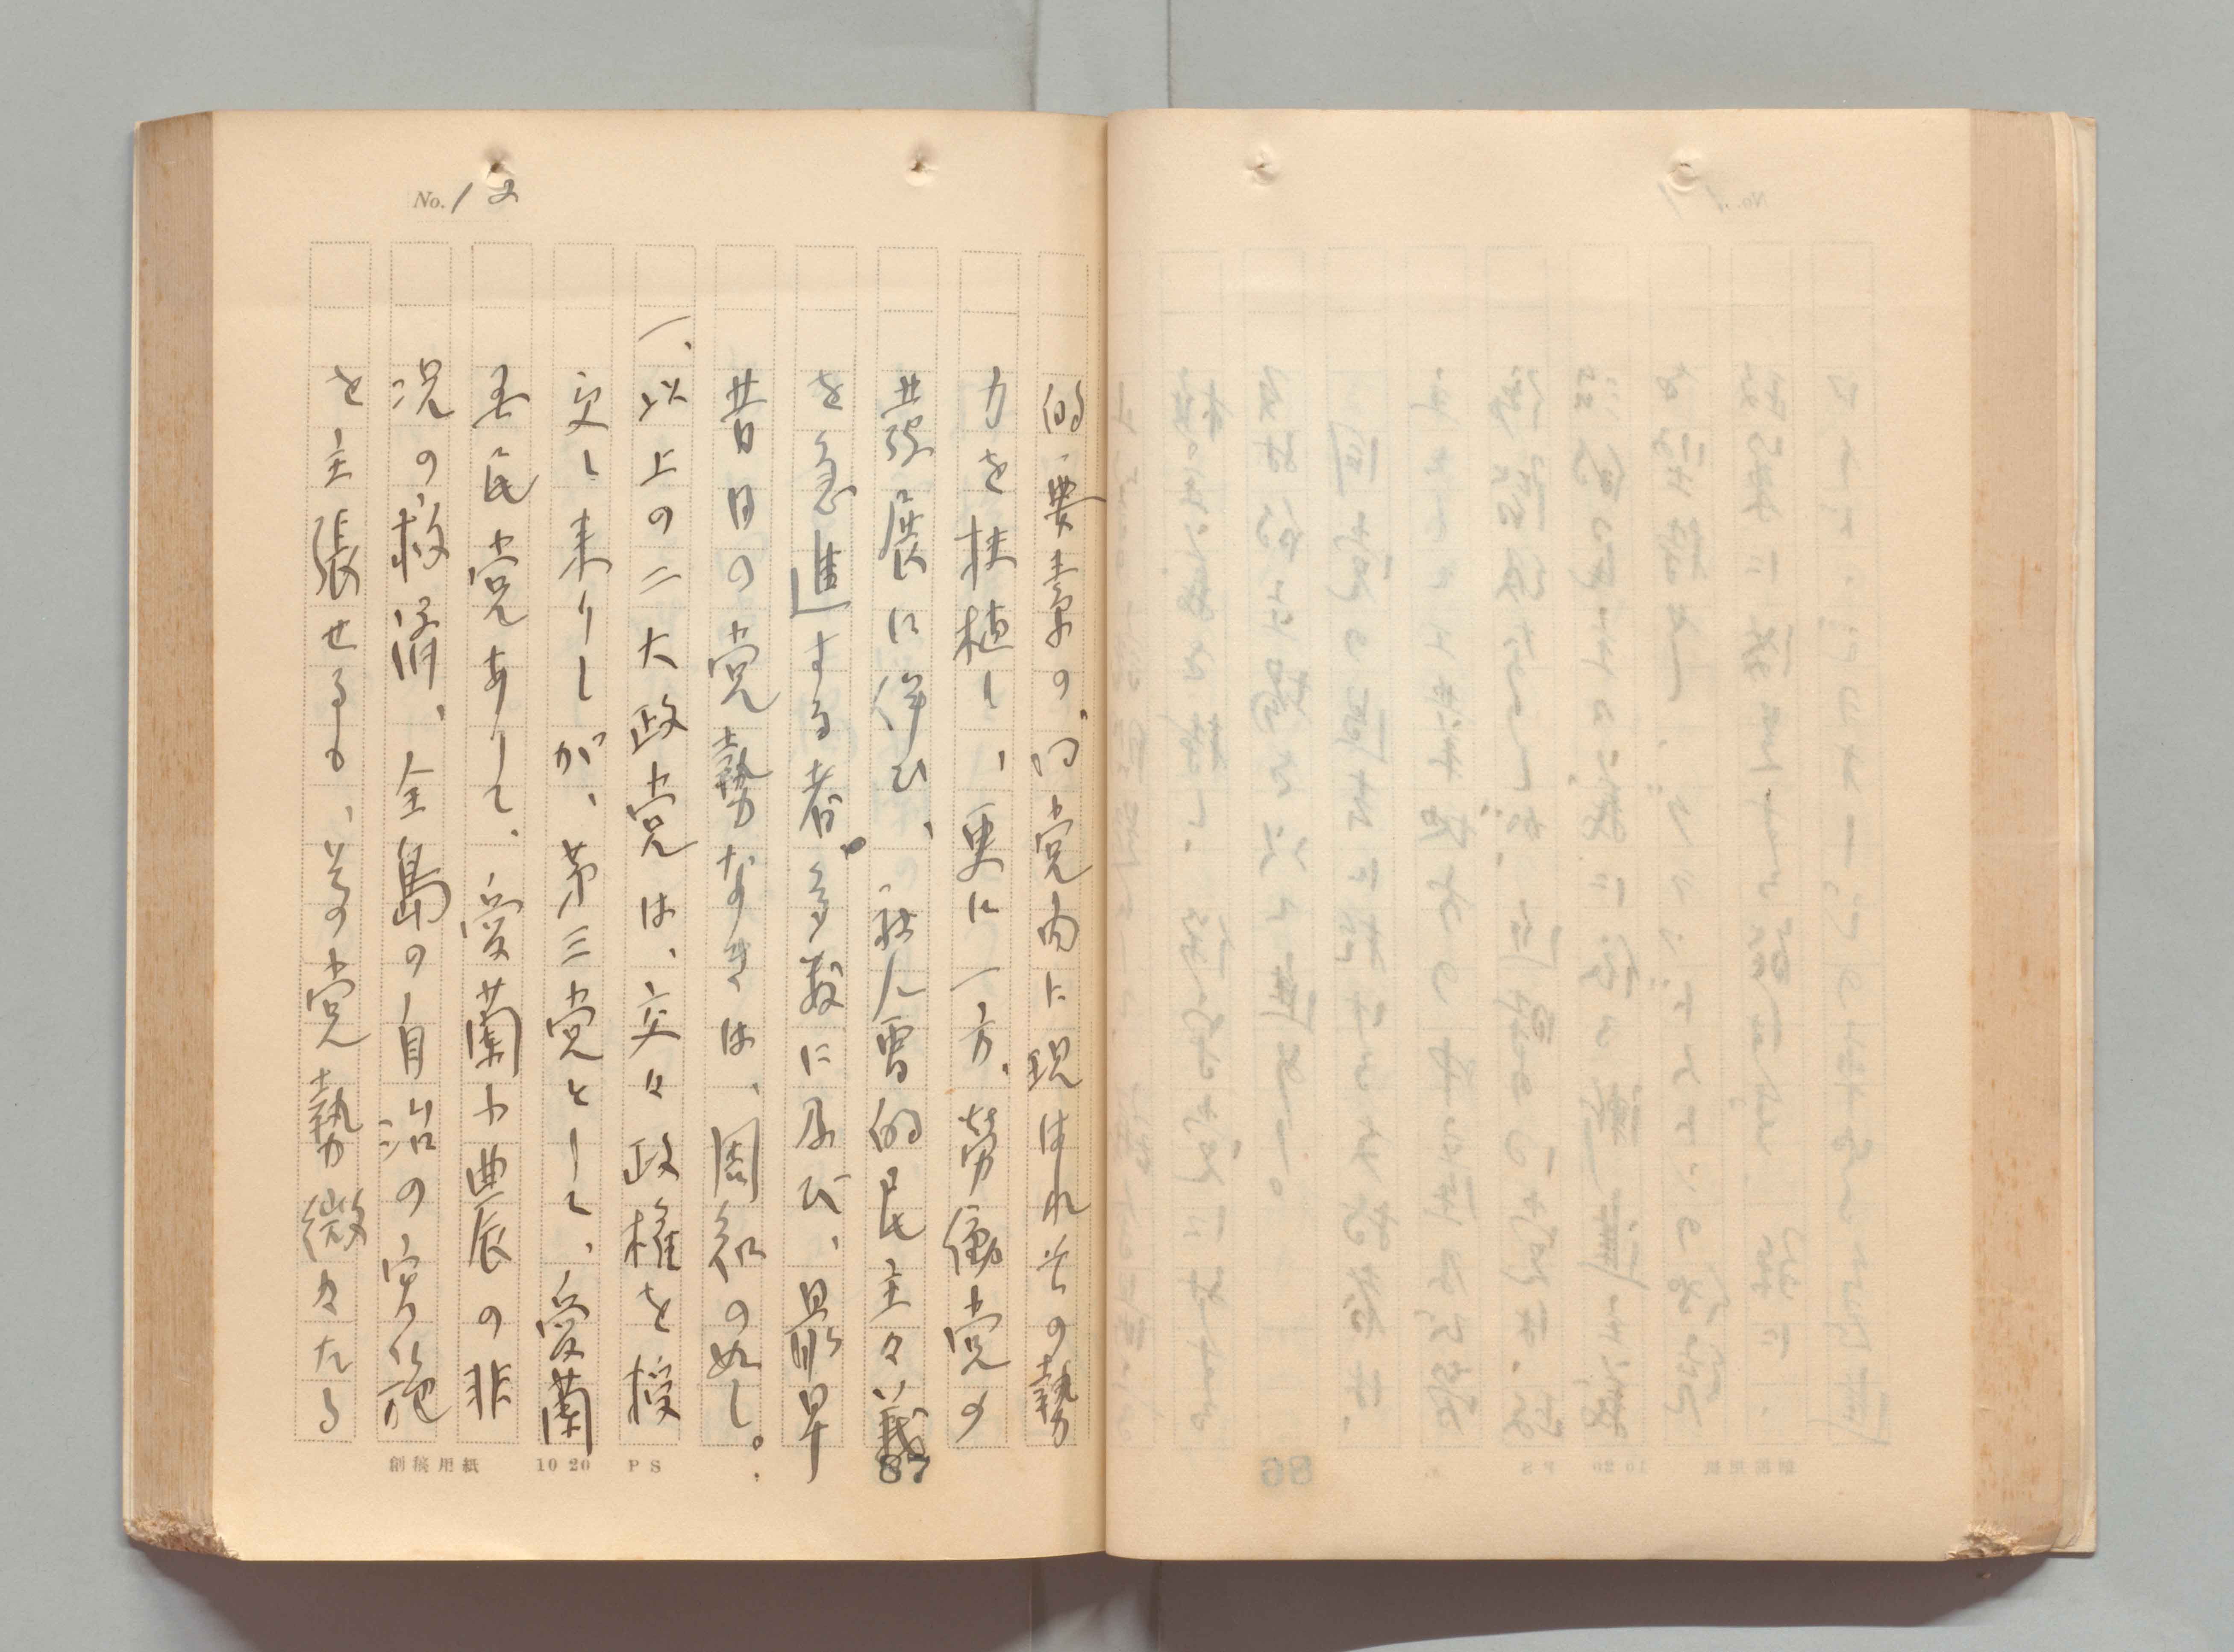 No. 12
的要素の、同党内に現はれ其の勢
力を扶植し、更に一方、労働党の
発展に伴ひ、社会的民主々義
を急進する者、多数に及び、最早
昔日の党勢なきは、周知の如し。
一、以上の二大政党は、交々政権を授
受し来りしが、第三党として、愛蘭
国民党ありて、愛蘭小農の
況の救済、全島の自治の実施
を主張せるも、其の党勢微々たる
87
創稿用紙 10 20 PS